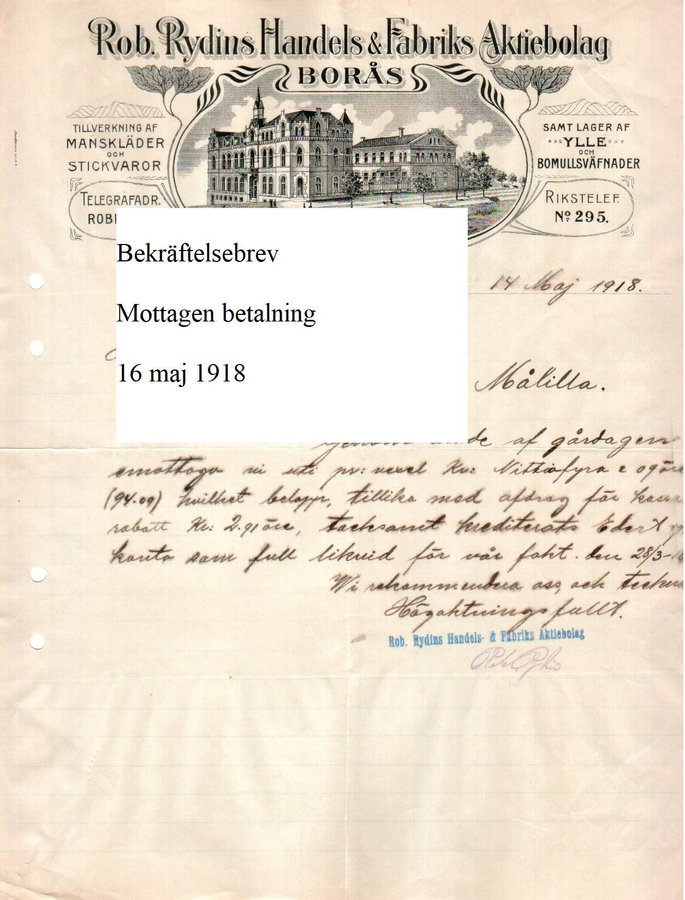 Rob. Rydins Handels & Fabriks Aktiebolag
BORÅS
TILLVERKNING AF
MANSKLÄDER
OCH
STICKVAROR
SAMT LAGER AF
YLLE
OCH
BOMULLSVÄFNADER
TELEGRAFADR.
ROBI
RIKSTELEF.
No 295.
14 Maj 1918.
Bekräftelsebrev
Mottagen betalning
16 maj 1918
Målilla.
af gårdagen
emottogo vi uti pr: vexel Kr: Nittiofyra 09 öre
(94.09) hvilket belopp, tillika med afdrag för kassa
rabatt Kr: 2.91 öre, tacksamt krediterats Edert
konto som full likvid för vår fakt. den 28/3-
Vi rekommendera oss, och teckna
Högaktningsfullt.
Rob. Rydins Handels- & Fabriks Aktiebolag